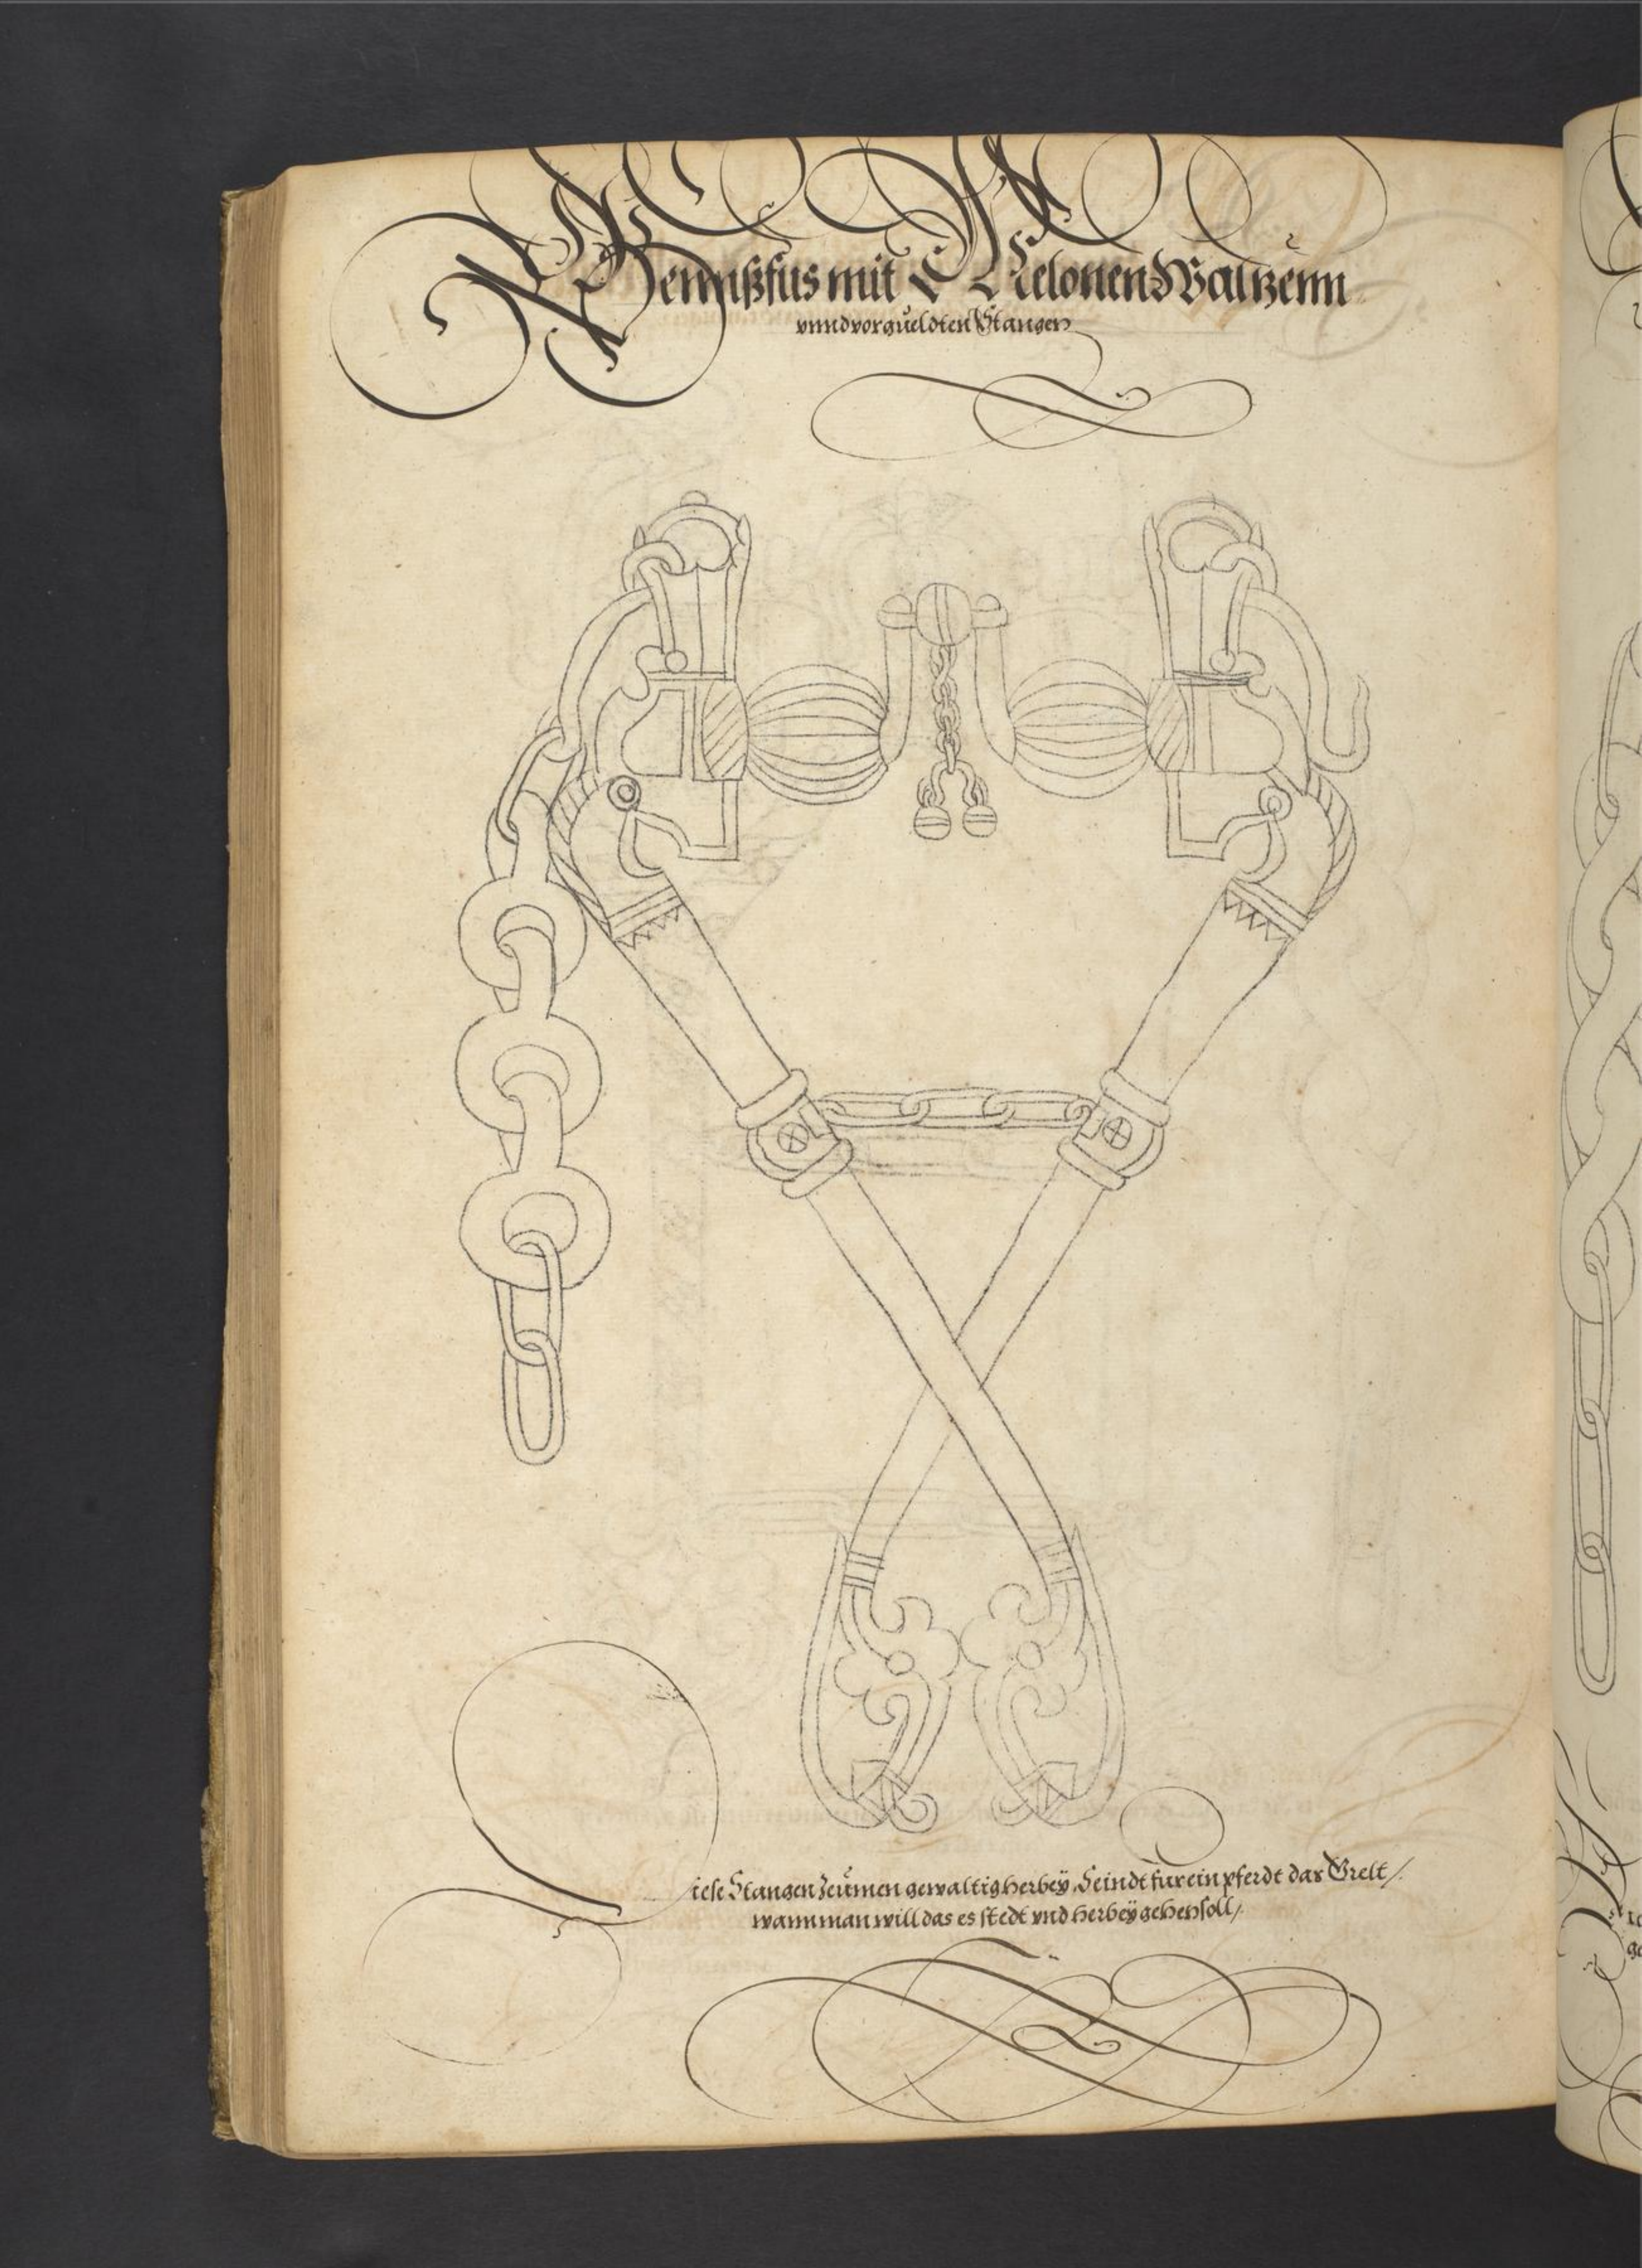 Gennßfus mit Melonen Waltzenn
vnnd vorgueldten Stangen
Diese Stangen Zeumen gewaltig herbey, Seindt fur ein pferdt das Grelt /
wann man will das es stedt vnd herbey gehen soll /